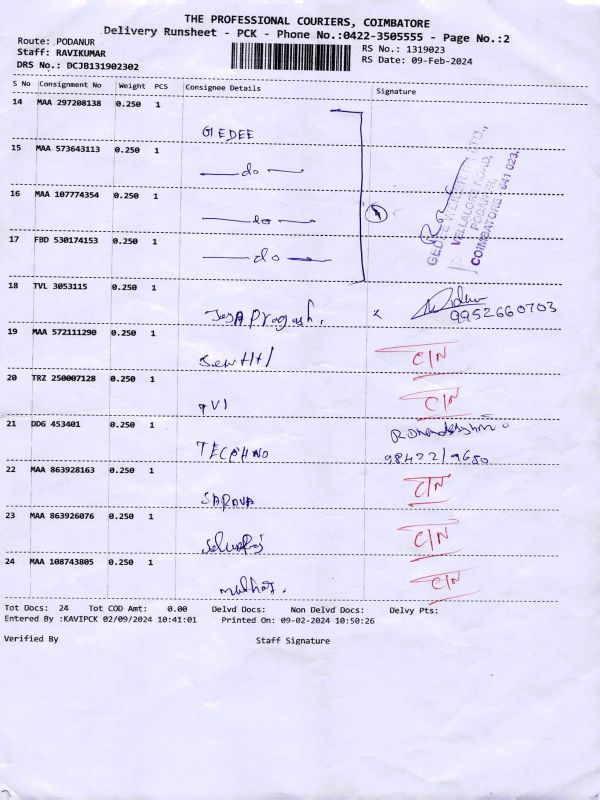 THE PROFESSIONAL COURIERS, COIMBATORE
Delivery Runsheet - PCK - Phone No.:0422-3505555 - Page No.:2
Route: PODANUR
RS No.: 1319023
Staff: RAVIKUMAR
RS Date: 09-Feb-2024
DRS No.: DCJB131902302
S No Consignment No Weight PCS Consignee Details Signature
14 MAA 297208138 0.250 1
GEDEE
15 MAA 573643113 0.250 1
do
16 MAA 107774354 0.250 1
do
17 FBD 530174153 0.250 1
do
VELLALORE ROAD,
PODANUR,
COIMBATORE - 641 023.
18 TVL 3053115 0.250 1
JayaPragash.
9952660703
19 MAA 572111290 0.250 1
C/N
20 TRZ 250007128 0.250 1
TVI C/N
21 DDG 453401 0.250 1
TECHNO
22 MAA 863928163 0.250 1
C/N
23 MAA 863926076 0.250 1
Selvaraj C/N
24 MAA 108743805 0.250 1
C/N
Tot Docs: 24 Tot COD Amt: 0.00 Delvd Docs: Non Delvd Docs: Delvy Pts:
Entered By :KAVIPCK 02/09/2024 10:41:01 Printed On: 09-02-2024 10:50:26
Verified By Staff Signature